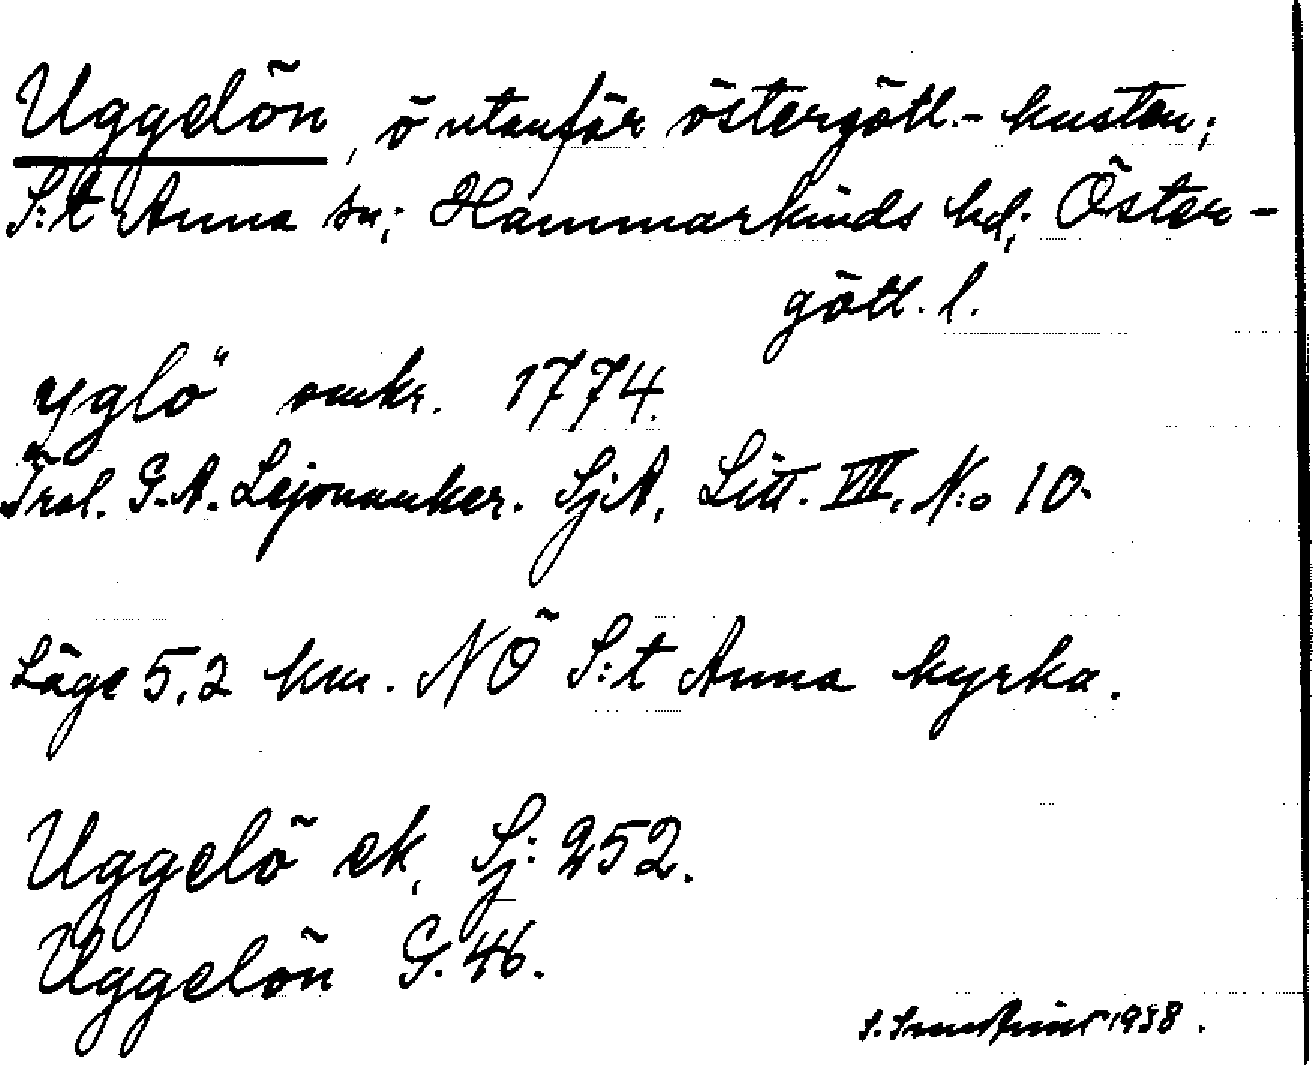 Uggelön, ö utanför östergötl.-kusten;
S:t Anna sn; Hammarkinds hd; Öster-
götl. l.
yglö omkr. 1774.
Trol. G.A. Lejonanker. SjA, Litt. VIII, N:o 10.
Läge 5,2 km. NÖ S:t Anna kyrka.
Uggelö ek. Sj: 252.
Uggelön G. 46.
1938.